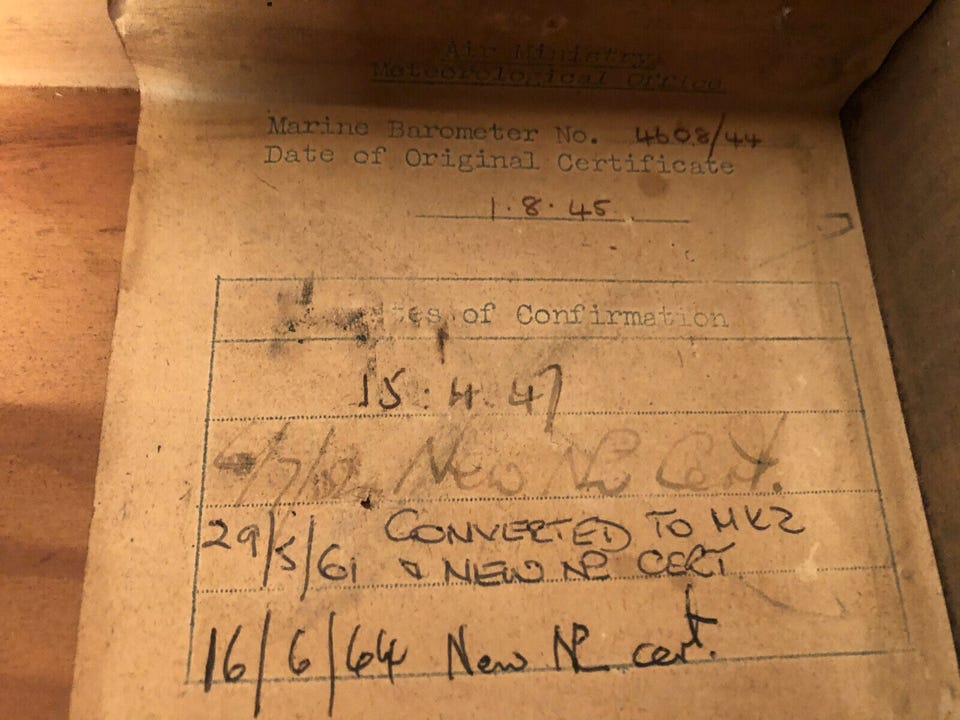 Air Ministry
Meteorological Office
Marine Barometer No. 4608/44
Date of Original Certificate
1.8.45
of Confirmation
15.4.47
New NPL Cert.
29/5/61 CONVERTED TO MK2
& NEW NPL CERT
16/6/64 New NPL cert.